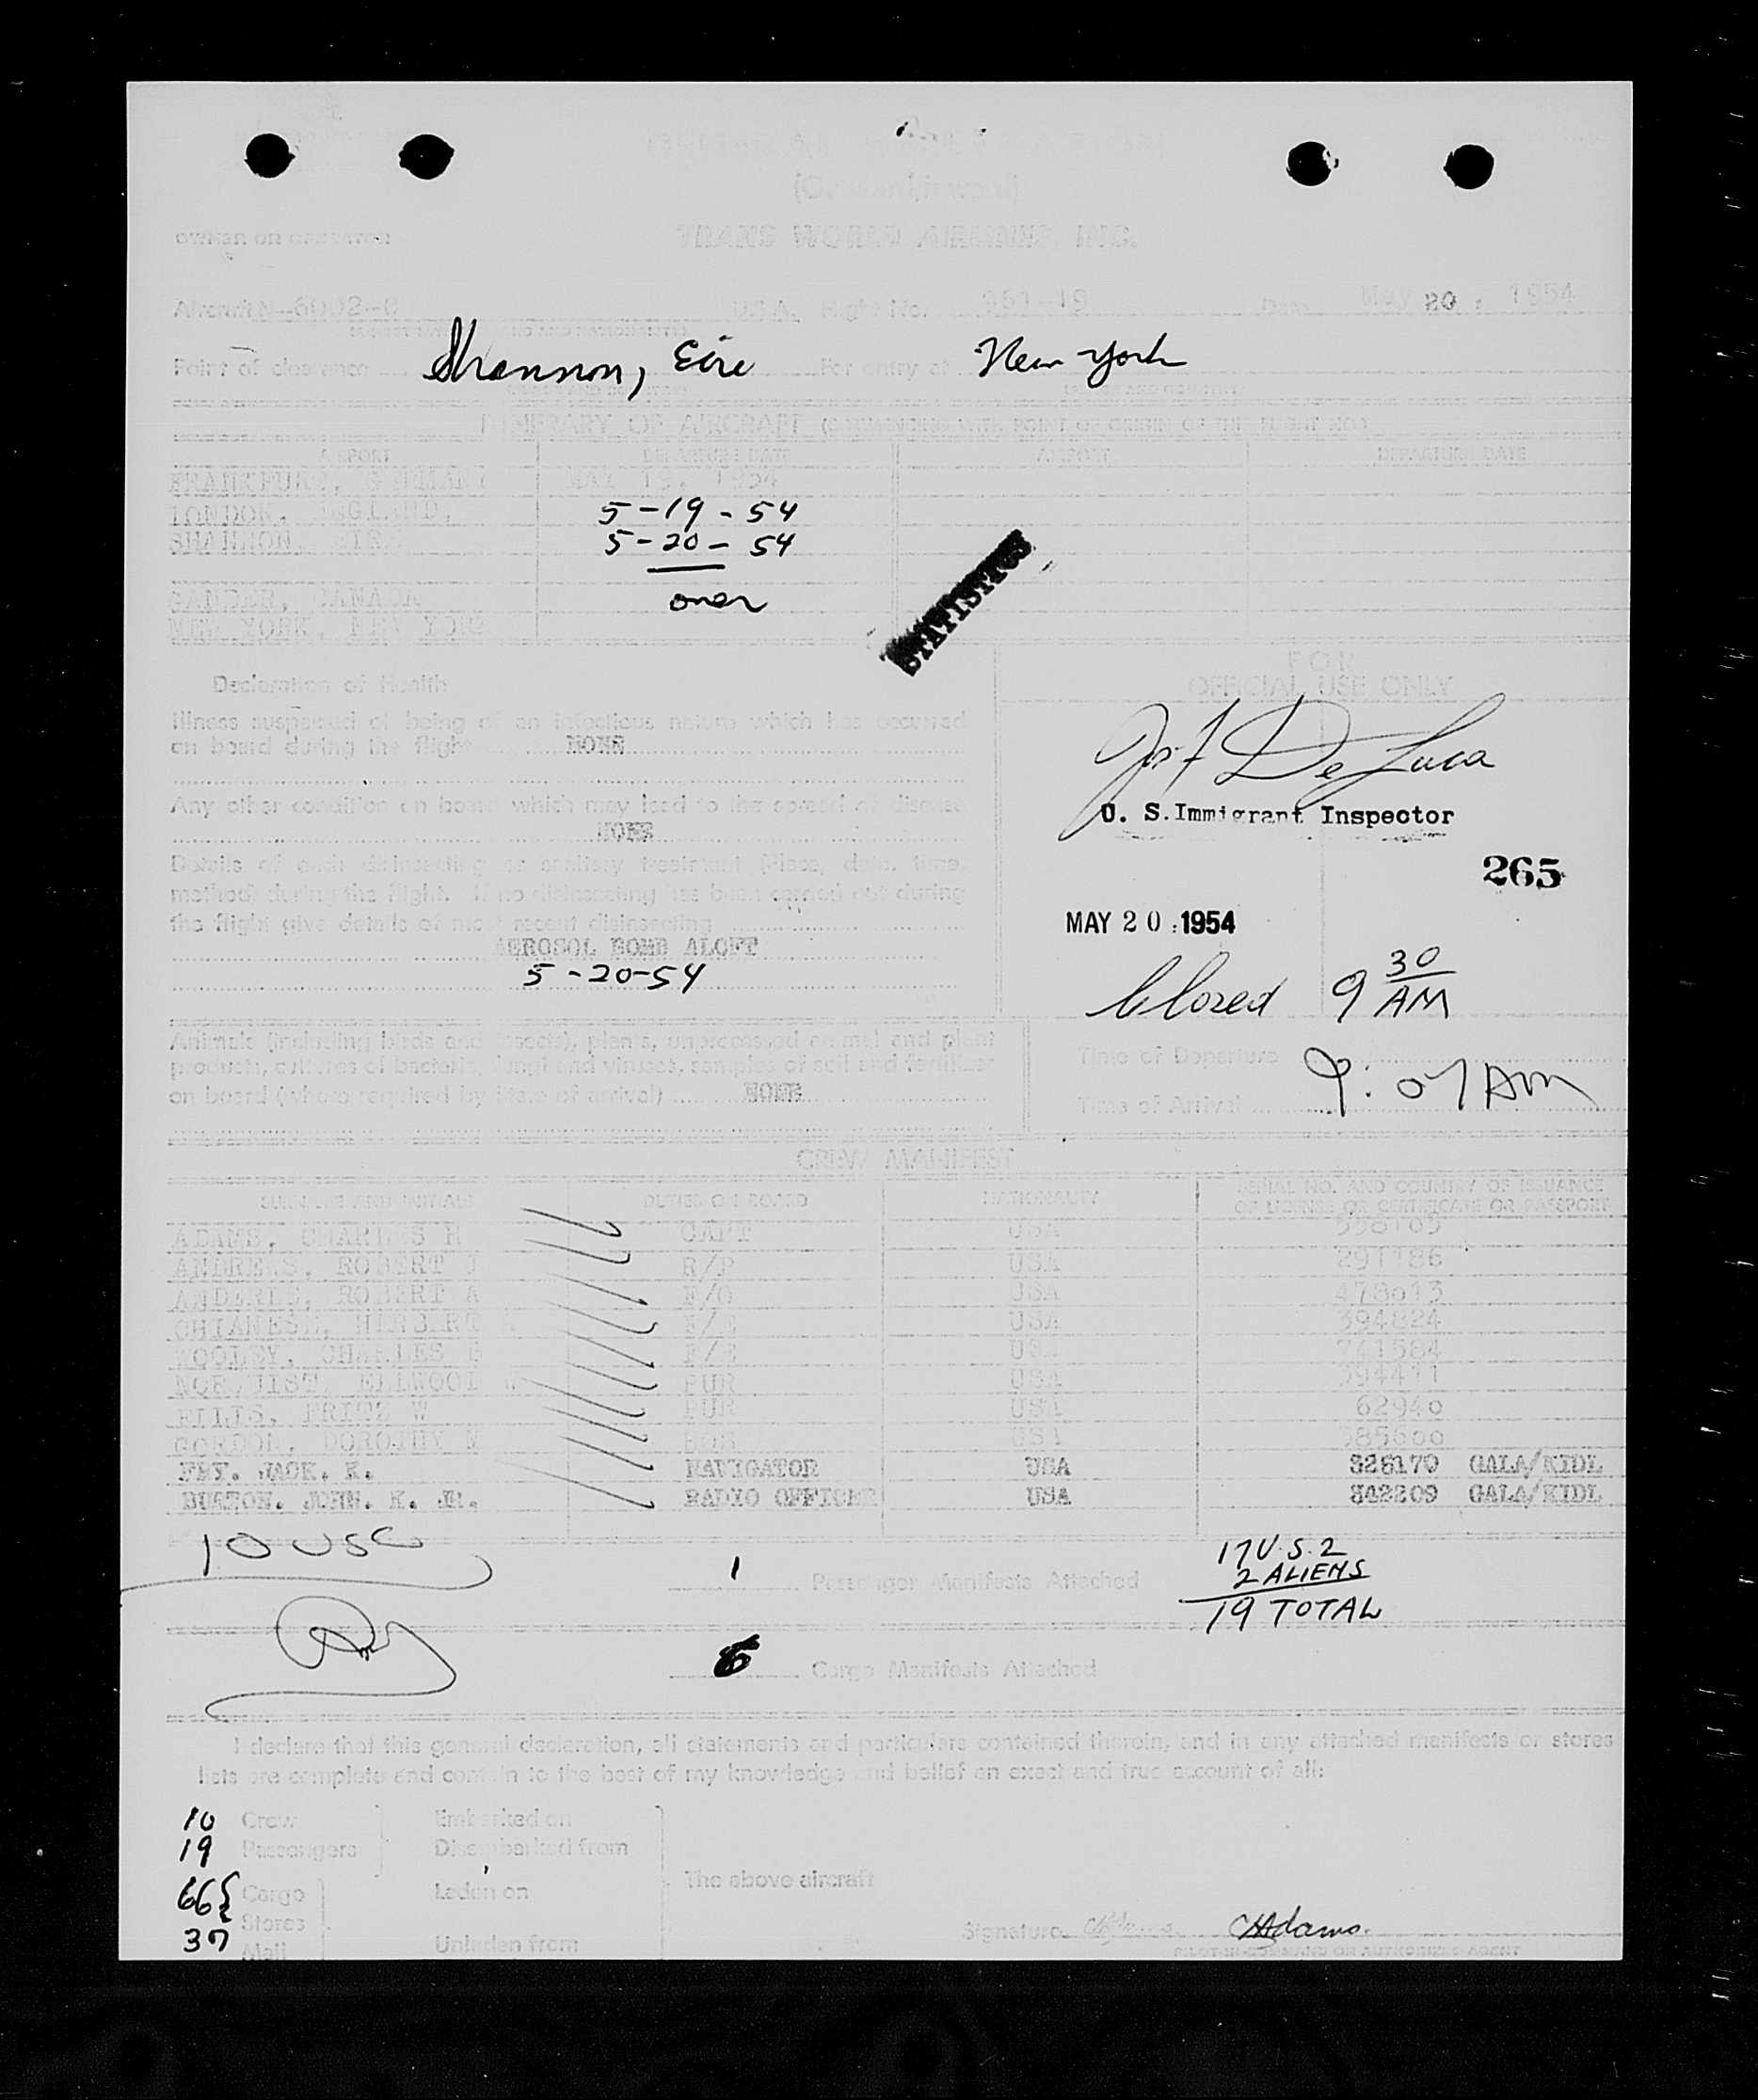 (Outward/Inward)
OWNER OR OPERATOR
TRANS WORLD AIRLINES, INC.
Aircraft N-6002-C U.S.A. Flight No. 951-19 Date May 20, 1954
Point of clearance Shannon, Eire For entry at New York
ITINERARY OF AIRCRAFT (BEGINNING WITH POINT OF ORIGIN OF THE FLIGHT NO.)
AIRPORT DEPARTURE DATE AIRPORT DEPARTURE DATE
FRANKFURT, GERMANY MAY 19, 1954
LONDON, ENGLAND, 5-19-54
SHANNON, EIRE 5-20-54
GANDER, CANADA over
NEW YORK, NEW YORK
STATISTICS
Declaration of Health
Illness suspected of being of an infectious nature which has occurred
on board during the flight NONE
Any other condition on board which may lead to the spread of disease
NONE
Details of each disinsecting or sanitary treatment (Place, date, time,
method) during the flight. If no disinsecting has been carried out during
the flight give details of most recent disinsecting
AEROSOL BOMB ALOFT
5-20-54
FOR
OFFICIAL USE ONLY
Jos F De Luca
U. S. Immigrant Inspector
265
MAY 20 1954
Closed 9 30 AM
Animals (including birds and insects), plants, unprocessed animal and plant
products, cultures of bacteria, fungi and viruses, samples of soil and fertilizer
on board (where required by State of arrival) NONE
Time of Departure
Time of Arrival 9:07 AM
CREW MANIFEST
SURNAME AND INITIALS DUTIES ON BOARD NATIONALITY SERIAL NO. AND COUNTRY OF ISSUANCE
OF LICENSE OR CERTIFICATE OR PASSPORT
ADAMS, CHARLES H CAPT USA
ANDREWS, ROBERT J R/P USA 291186
ROBERT A F/O USA
HERBERT F/E USA 394824
WOOLEY, CHARLES F/E USA 741584
ELLWOOD W PUR USA
FRITZ W PUR USA 62940
GORDON, DOROTHY M HOS USA 385600
JACK. K. NAVIGATOR USA 326170 GALA/KIDL
BURTON. JOHN. K. JR. RADIO OFFICER USA 342209 GALA/KIDL
10 USC
1 Passenger Manifests Attached
17 U.S.2
2 ALIENS
19 TOTAL
6 Cargo Manifests Attached
I declare that this general declaration, all statements and particulars contained therein, and in any attached manifests or stores
lists are complete and contain to the best of my knowledge and belief an exact and true account of all:
10 Crew Embarked on
19 Passengers Disembarked from
The above aircraft
66 Cargo Laden on
Stores
37 Mail Unladen from
Signature CHAdams.
PILOT-IN-COMMAND OR AUTHORIZED AGENT